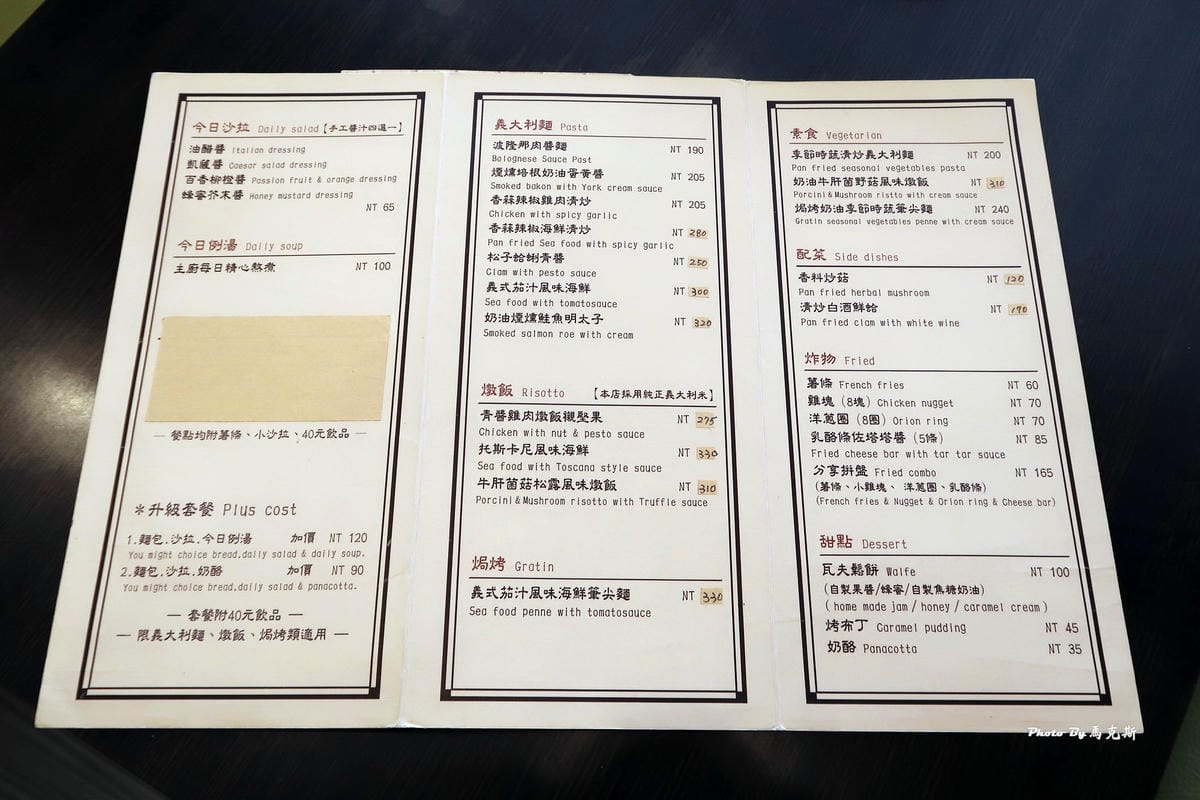 今日沙拉 Daily salad【手工醬汁四選一】
油醋醬 Italian dressing
凱薩醬 Caesar salad dressing
百香柳橙醬 Passion fruit & orange dressing
蜂蜜芥末醬 Honey mustard dressing
NT 65
今日例湯 Daily soup
主廚每日精心熬煮 NT 100
— 餐點均附薯條、小沙拉、40元飲品 —
*升級套餐 Plus cost
1.麵包.沙拉.今日例湯 加價 NT 120
You might choice bread,daily salad & daily soup.
2.麵包.沙拉.奶酪 加價 NT 90
You might choice bread,daily salad & panacotta.
— 套餐附40元飲品 —
— 限義大利麵、燉飯、焗烤類適用 —
義大利麵 Pasta
波隆那肉醬麵 NT 190
Bolognese Sauce Past
煙燻培根奶油蛋黃醬 NT 205
Smoked bakon with York cream sauce
香蒜辣椒雞肉清炒 NT 205
Chicken with spicy garlic
香蒜辣椒海鮮清炒 NT 280
Pan fried Sea food with spicy garlic
松子蛤蜊青醬 NT 250
Clam with pesto sauce
義式茄汁風味海鮮 NT 300
Sea food with tomatosauce
奶油煙燻鮭魚明太子 NT 320
Smoked salmon roe with cream
燉飯 Risotto 【本店採用純正義大利米】
青醬雞肉燉飯襯堅果 NT 275
Chicken with nut & pesto sauce
托斯卡尼風味海鮮 NT 330
Sea food with Toscana style sauce
牛肝菌菇松露風味燉飯 NT 310
Porcini&Mushroom risotto with Truffle sauce
焗烤 Gratin
義式茄汁風味海鮮筆尖麵 NT 330
Sea food penne with tomatosauce
素食 Vegetarian
季節時蔬清炒義大利麵 NT 200
Pan fried seasonal vegetables pasta
奶油牛肝菌野菇風味燉飯 NT 310
Porcini&Mushroom ristto with cream sauce
焗烤奶油季節時蔬筆尖麵 NT 240
Gratin seasonal vegetables penne with cream sauce
配菜 Side dishes
香料炒菇 NT 120
Pan fried herbal mushroom
清炒白酒鮮蛤 NT 170
Pan fried clam with white wine
炸物 Fried
薯條 French fries NT 60
雞塊 (8塊) Chicken nugget NT 70
洋蔥圈 (8圈) Orion ring NT 70
乳酪條佐塔塔醬 (5條) NT 85
Fried cheese bar with tar tar sauce
分享拼盤 Fried combo NT 165
(薯條、小雞塊、洋蔥圈、乳酪條)
(French fries & Nugget & Orion ring & Cheese bar)
甜點 Dessert
瓦夫鬆餅 Walfe NT 100
(自製果醬/蜂蜜/自製焦糖奶油)
( home made jam / honey / caramel cream )
烤布丁 Caramel pudding NT 45
奶酪 Panacotta NT 35
Photo By 馬克斯